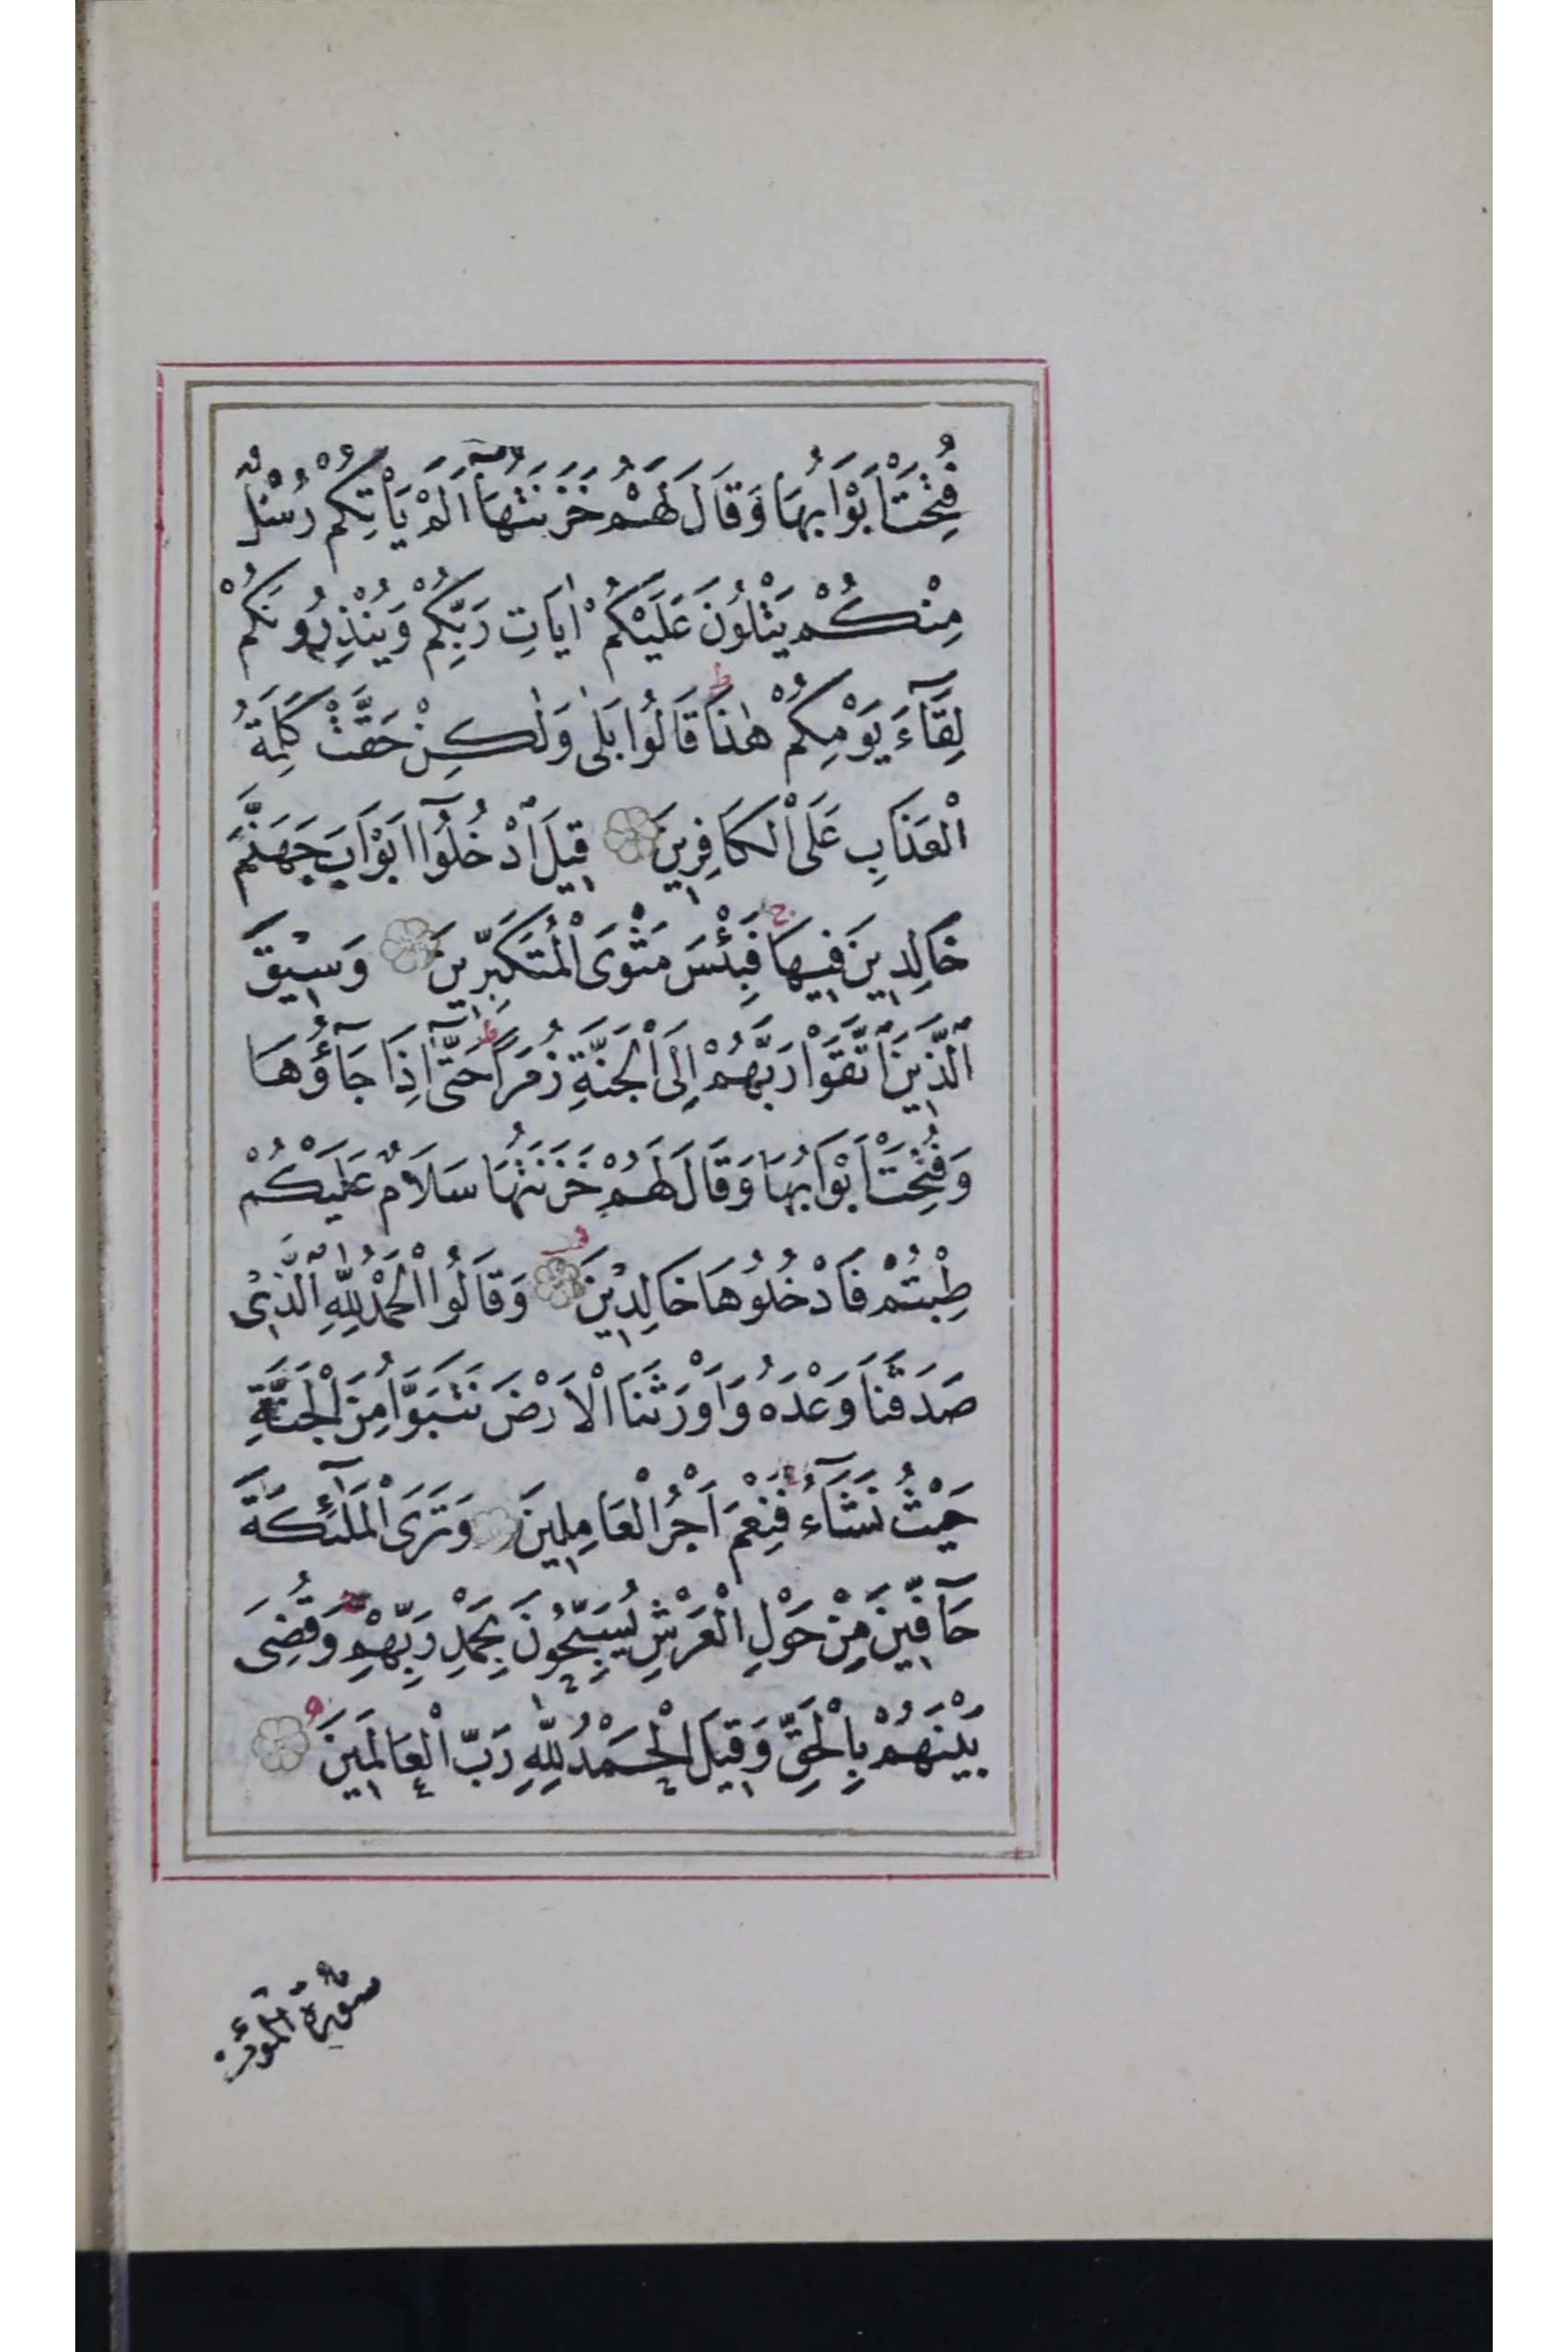 فُتِحَتْ اَبْوَابُهَا وَقَالَ لَهُمْ خَزَنَتُهَآ اَلَمْ يَاْتِكُمْ رُسُلٌ
مِنْكُمْ يَتْلُونَ عَلَيْكُمْ اٰيَاتِ رَبِّكُمْ وَيُنْذِرُونَكُمْ
لِقَآءَ يَوْمِكُمْ هٰذَا ط قَالُوا بَلٰى وَلٰكِنْ حَقَّتْ كَلِمَةُ
الْعَذَابِ عَلَى الْكَافِرِينَ قِيلَ ادْخُلُوٓا اَبْوَابَ جَهَنَّمَ
خَالِدِينَ فِيهَا ج فَبِئْسَ مَثْوَى الْمُتَكَبِّرِينَ وَسِيْقَ
الَّذِينَ اتَّقَوْا رَبَّهُمْ اِلَى الْجَنَّةِ زُمَرًا ط حَتّٰٓى اِذَا جَآؤُهَا
وَفُتِحَتْ اَبْوَابُهَا وَقَالَ لَهُمْ خَزَنَتُهَا سَلَامٌ عَلَيْكُمْ
طِبْتُمْ فَادْخُلُوهَا خَالِدِيْنَ وَقَالُوا الْحَمْدُ لِلّٰهِ الَّذِىْ
صَدَقَنَا وَعْدَهُ وَاَوْرَثَنَا الْاَرْضَ نَتَبَوَّاُ مِنَ الْجَنَّةِ
حَيْثُ نَشَآءُ فَنِعْمَ اَجْرُ الْعَامِلِينَ وَتَرَى الْمَلٰٓئِكَةَ
حَآفِّينَ مِنْ حَوْلِ الْعَرْشِ يُسَبِّحُونَ بِحَمْدِ رَبِّهِمْ وَقُضِىَ
بَيْنَهُمْ بِالْحَقِّ وَقِيلَ الْحَمْدُ لِلّٰهِ رَبِّ الْعَالَمِينَ
سورة المؤمن